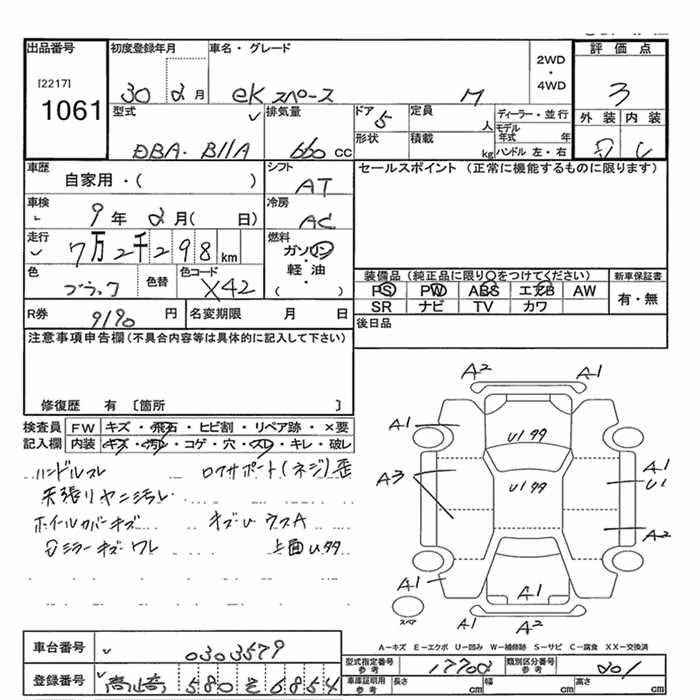 出品番号 初度登録年月 車名・グレード 2WD・4WD 評価点
[2217] 1061 30 2月 eK スペース M 3
型式 排気量 ドア 5 定員 人 ディーラー・並行 外装 内装
DBA- B11A 660 cc 形状 積載 kg モデル年式 年 ハンドル 左・右
車歴 自家用・( ) シフト AT セールスポイント (正常に機能するものに限ります)
車検 9年 2月( 日) 冷房 AC
走行 7万2千298 km 燃料 ガソリン・軽・油・( )
色 ブラック 色替 色コード X42
装備品(純正品に限り○をつけてください) 新車保証書
PS PW ABS エアB AW 有・無
SR ナビ TV カワ
R券 9190円 名変期限 月 日 後日品
注意事項申告欄(不具合内容等は具体的に記入して下さい)
修復歴 有 [箇所 ]
検査員 FW キズ・飛石・ヒビ割・リペア跡・×要
記入欄 内装 キズ・汚れ・コゲ・穴・スレ・キレ・破レ
ハンドルスレ ロアサポート(ネジ)歪
天張リヤニ汚レ
ホイールカバーキズ キズUウスA
ミラーキズ・ワレ 上面Uタタ
A2 A1
A1 Uタタ
A3 Uタタ A1 U1
A2
A1 A1 A1
スペア A2
A−キズ E−エクボ U−凹み W−補修跡 S−サビ C−腐食 XX−交換済
車台番号 0303579 型式指定番号 参考 17702 類別区分番号 参考 201
登録番号 580 そ 6854 車庫証明用 参考 長さ cm 幅 cm 高さ cm